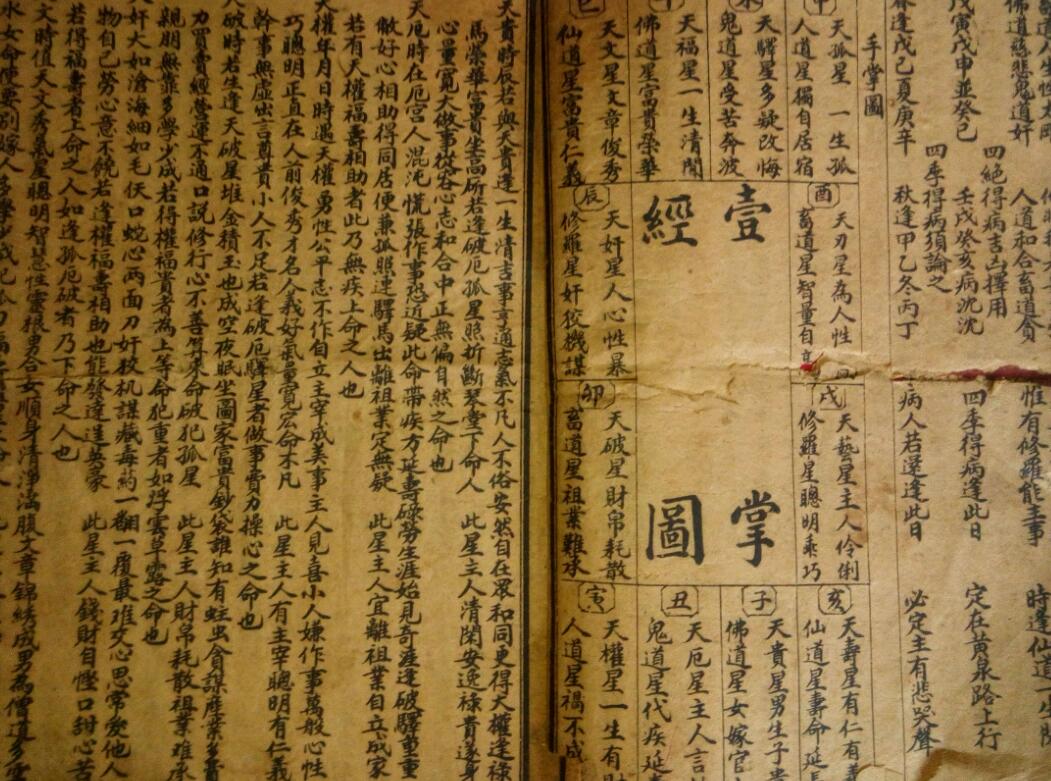 道人生性太岡
佛道慈悲鬼道奸
人道和合畜道貪
惟有修羅能主事
時逢仙道一生
四絕得病吉凶擇用
戊寅戊申並癸已
壬戌癸亥病沈沈
四季得病逢此日
定在黃泉路上行
四季得病須論之
春逢戊己夏庚辛
秋逢甲乙冬丙丁
病人若還逢此日
必定主有悲哭聲
手掌圖
申
天孤星一生孤
人道星獨自居宿
未
天驛星多疑改悔
鬼道星受苦奔波
午
天福星一生清閒
佛道星富貴榮華
巳
天文星文章俊秀
仙道星富貴仁義
酉
天刃星為人性
畜道星智量自
壹掌
經圖
辰
天奸星人心性暴
修羅星奸狡機謀
戌
天藝星主人伶俐
修羅星聰明乖巧
卯
天破星財帛耗散
畜道星祖業難承
亥
天壽星有仁有
仙道星壽命延
子
天貴星男生子貴
佛道星女嫁官
丑
天厄星主人言
鬼道星代疾延
寅
天權星一生有
人道星福不成
天貴時辰若與天貴逢一生清吉事事通志氣不凡人不俗安然自在眾和同更得天權逢祿
馬榮華富貴坐高所若逢破厄孤星照折斷琴堂下命人 此星主人清閑安逸祿貴遂身
心量寬大做事從容心志和合中正無偏自然之命也
天厄時在厄宮人混沌慌張作事恐近疑此命帶疾方延壽碌勞生涯始見奇涯逢破驛重重
做好心相助得同居便兼孤照逢驛馬出離祖業定無疑 此星主人宜離祖業自立成家
若有天權福壽相助者此乃無疾上命之人也
天權年月日時遇天權男性公平志不作自立主宰成美事主人見喜小人嫌作事萬般心性
巧聰明正直在人前俊秀才名人義好氣量寬宏命不凡 此星主人有主宰聰明有仁義
幹事無虛出言尊貴小人不足若逢破厄驛星者做事費力操心之命也
天破時若生逢天破星堆金積玉也成空夜眠坐圖家富貴鈔袋誰知有蛀虫貪謀產業多費
力買賣經營運不通口說修行心不善算來命破犯孤星 此星主人財帛耗散祖業难承
親朋無靠多學少成若得權福貴者為上等命犯重者如浮雲草露之命也
奸大如滄海細如毛仸口蛇心兩面刀奸狡机謀藏毒約一翻一覆最难交心思常愛他人
物自己勞心意不饒若逢權福壽相助也能發達逞英豪 此星主人錢財自慳口甜心苦
若得福壽者上命之人如逢孤厄破者乃下命之人也
文時值天文秀氣星聰明智慧性靈根男合女順身清淨滿腹文章錦綉成男為僧道多